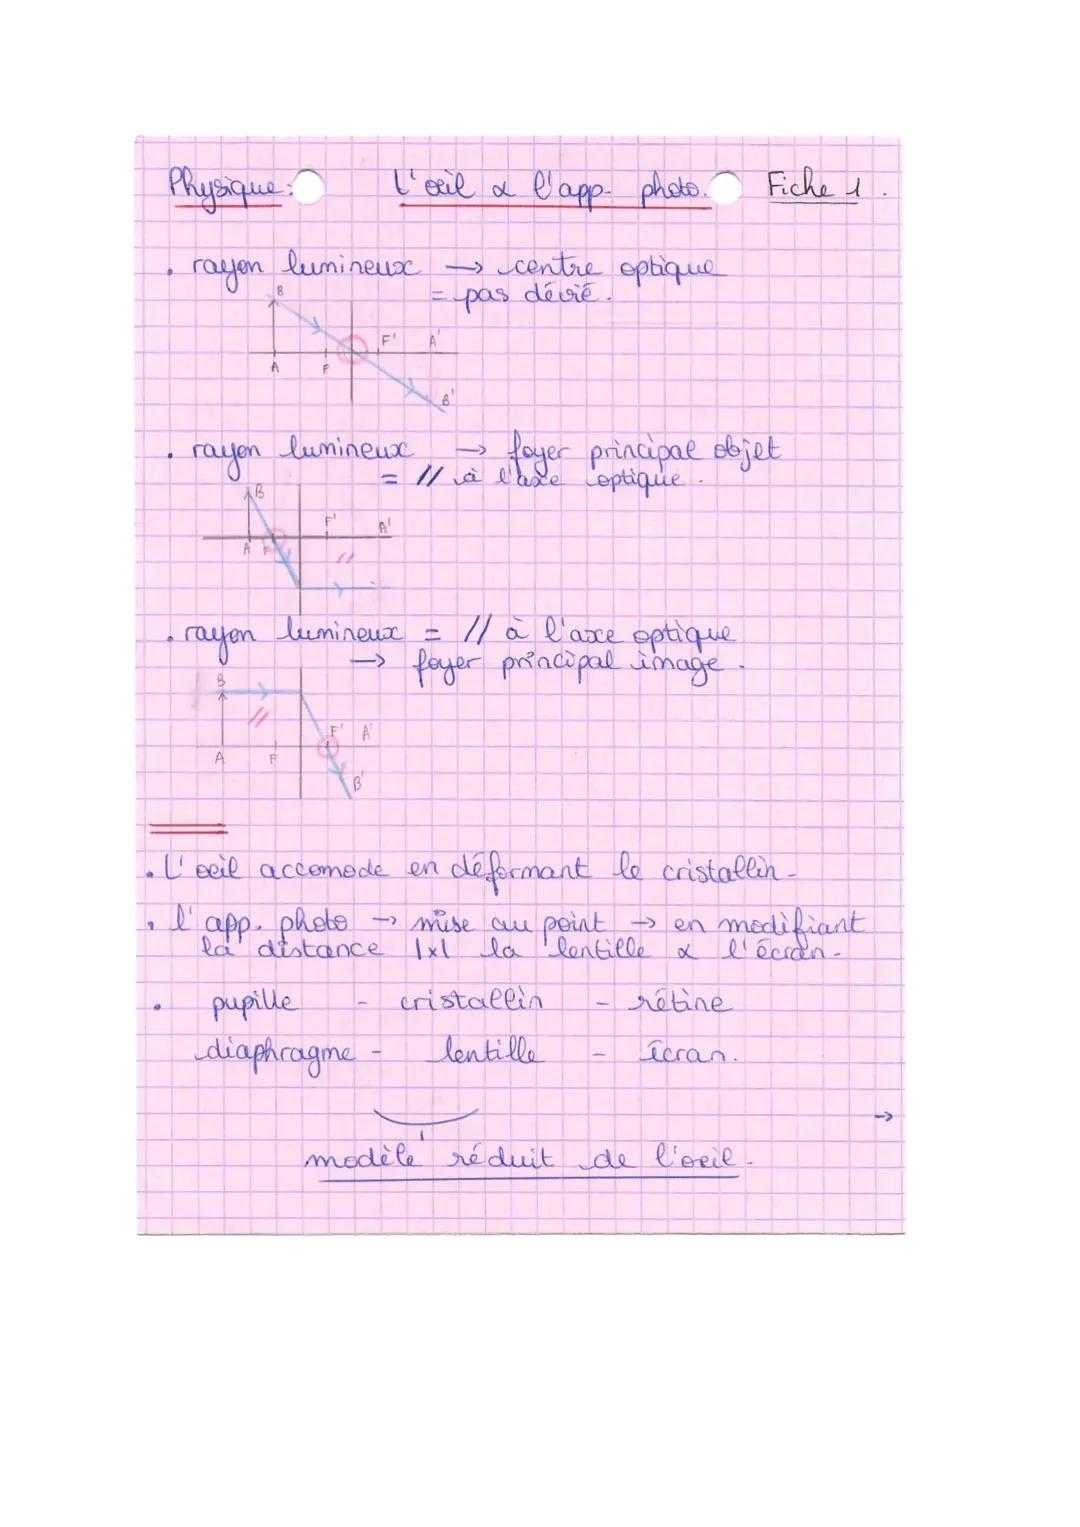 Physique: L'œil & l'app. photo. Fiche 1.
. rayon lumineux → centre optique
= pas dévié.
B
F' A'
A F
B'
. rayon lumineux → foyer principal objet
= // à l'axe optique.
B
F' A'
A F
//
. rayon lumineux = // à l'axe optique
→ foyer principal image.
B
//
F' A'
A F
B'
. L'œil accomode en déformant le cristallin.
. l'app. photo → mise au point → en modifiant
la distance |x| la lentille & l'écran.
. pupille - cristallin - rétine
diaphragme - lentille - écran.
→
modèle réduit de l'œil.